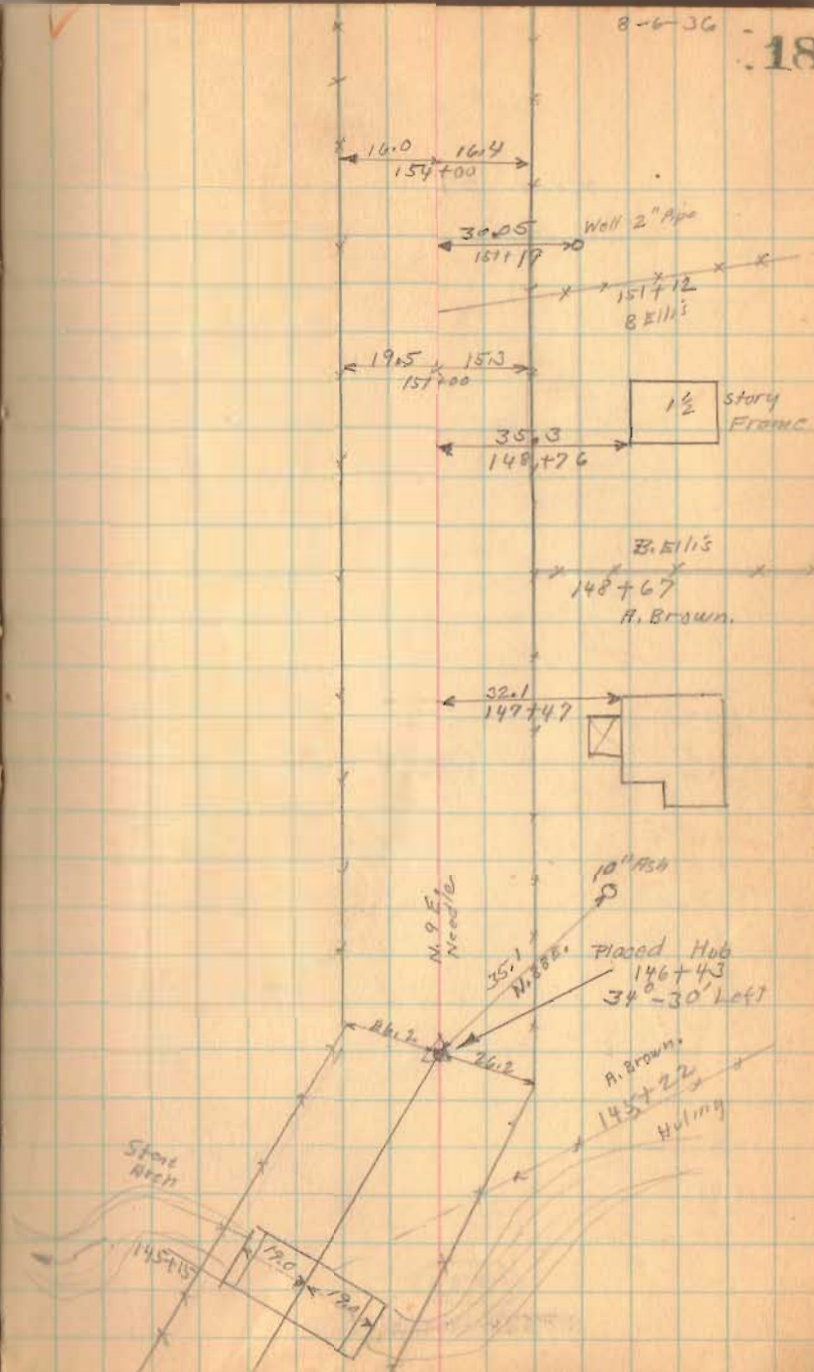 8-6-36
18
16.0 16.4
154+00
30.05 Well 2" Pipe
151+17
151+12
B Ellis
19.5 15.3
151+00
1 1/2 Story
Frame
35.3
148+76
B. Ellis
148+67
A. Brown.
32.1
147+47
10" Ash
N. 9 E.
Needle
35.1
N. 38 E.
Placed Hub
146+43
34°-30' Left
26.2
26.2
A. Brown.
145+22
Huling
Stone
Arch
145+15
19.0
19.0